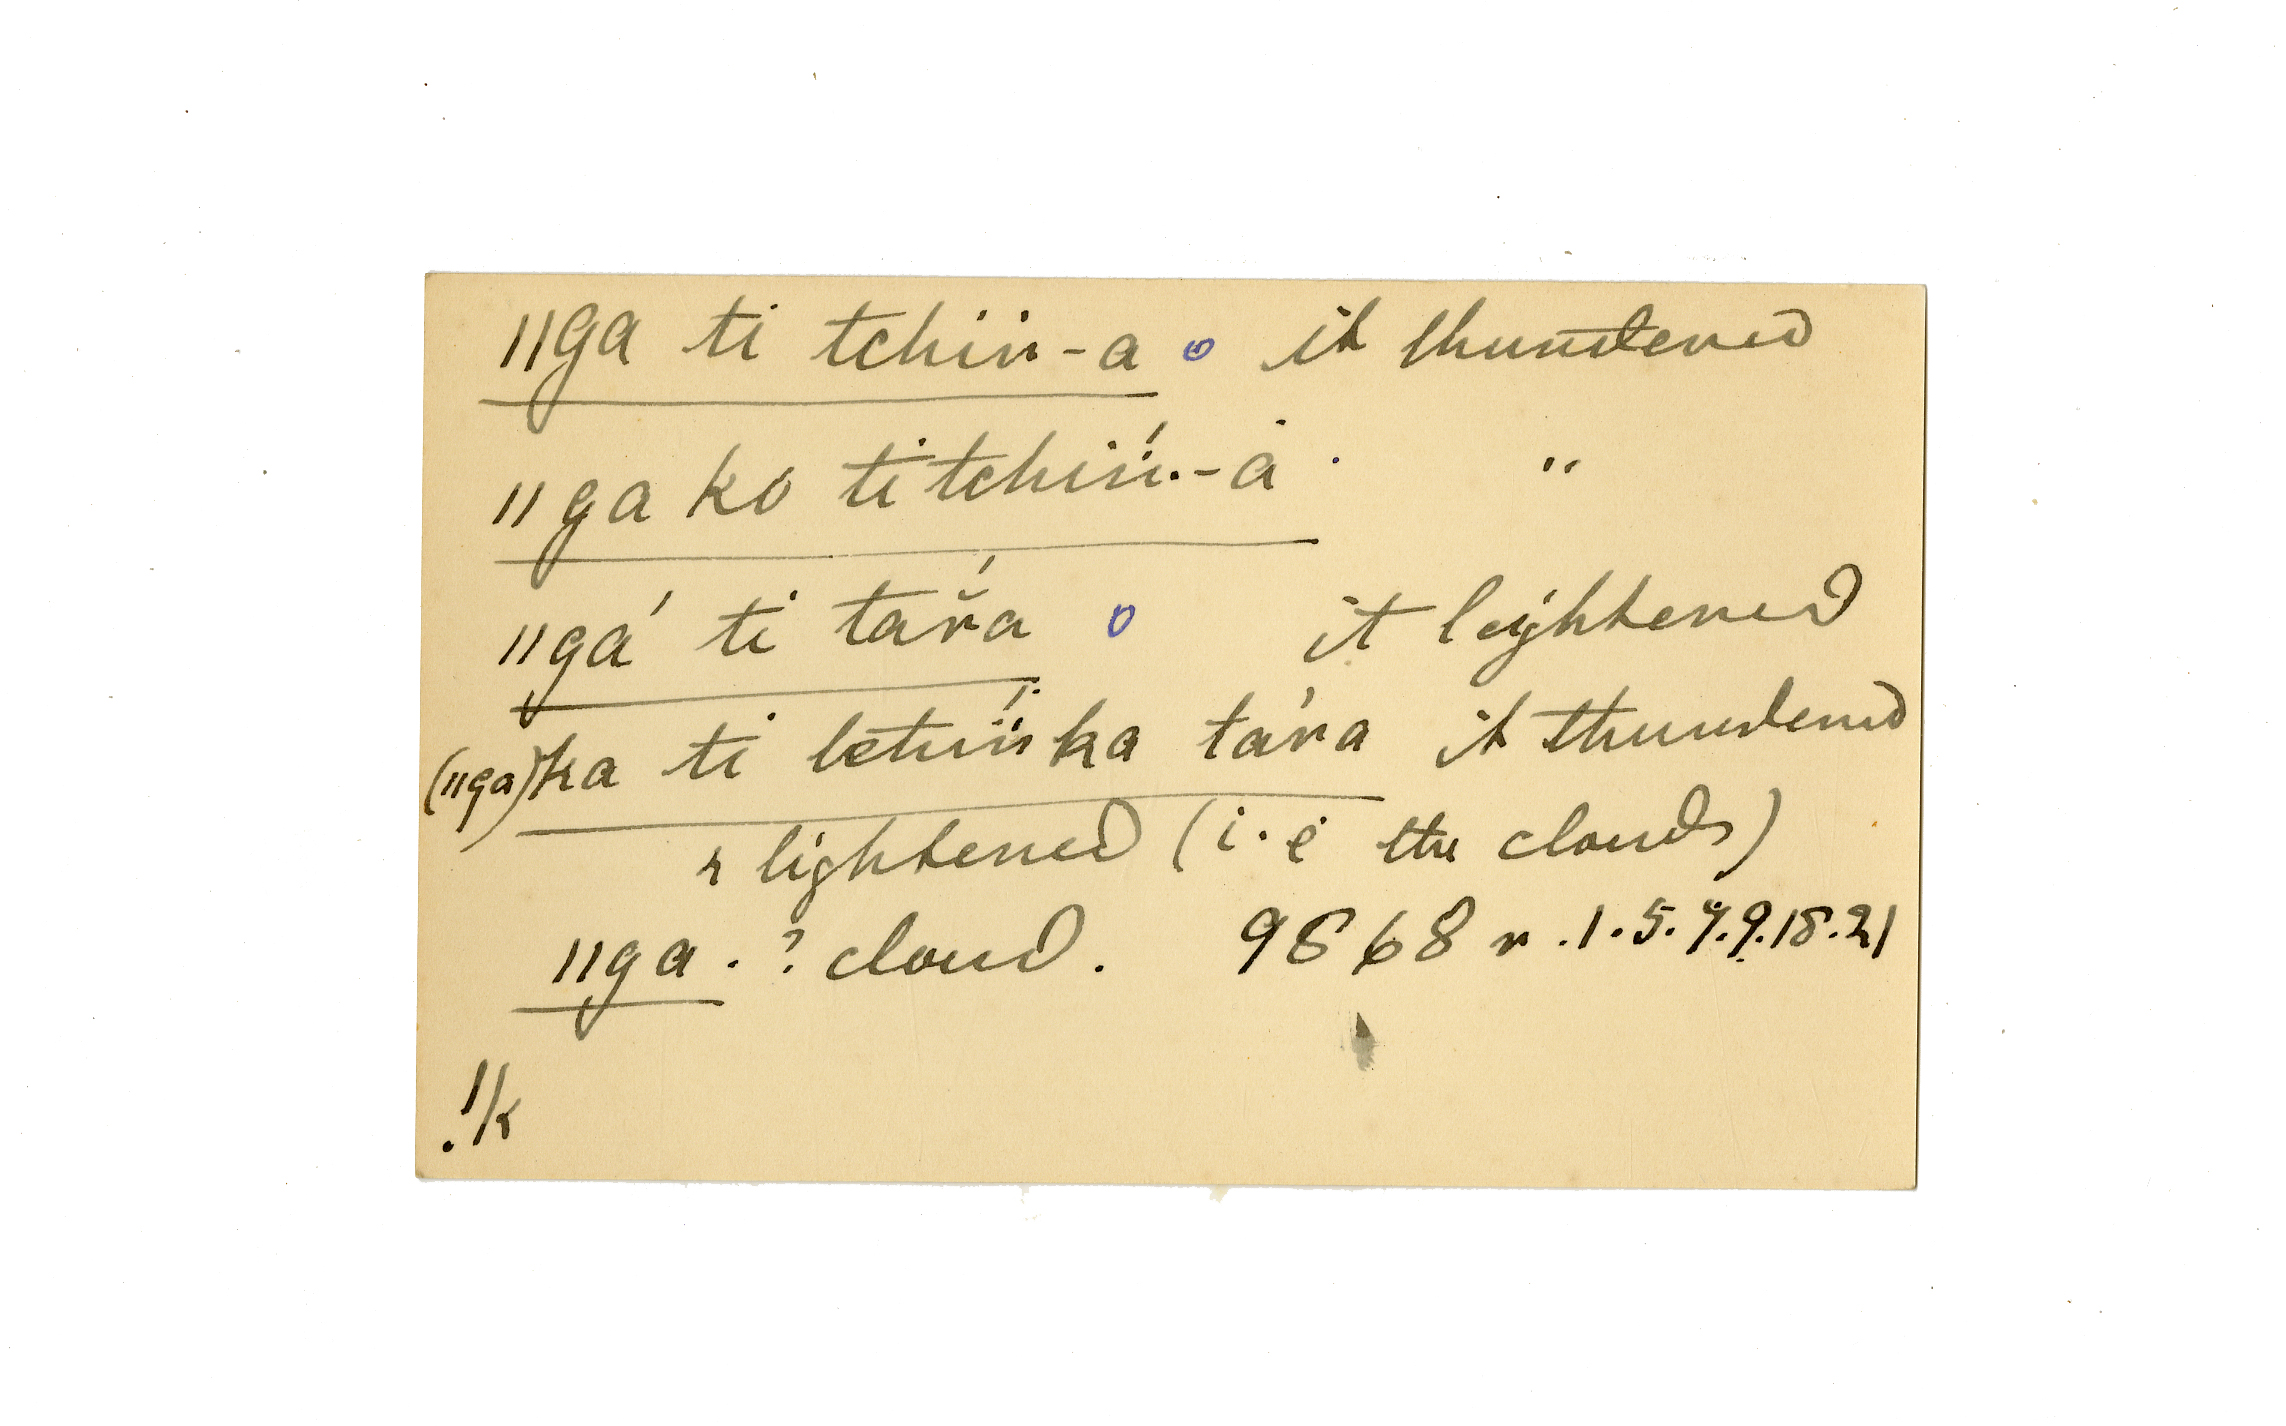 ǁga ti tchiṅ-a it thundered
ǁga ko ti tchiń-a "
ǁgá ti tařa it lightened
(ǁga) ka ti letuiń ka tára it thundered
& lightened (i.e the clouds)
ǁga . ? cloud. 9868 r .1.5.7.9.18.21
!k